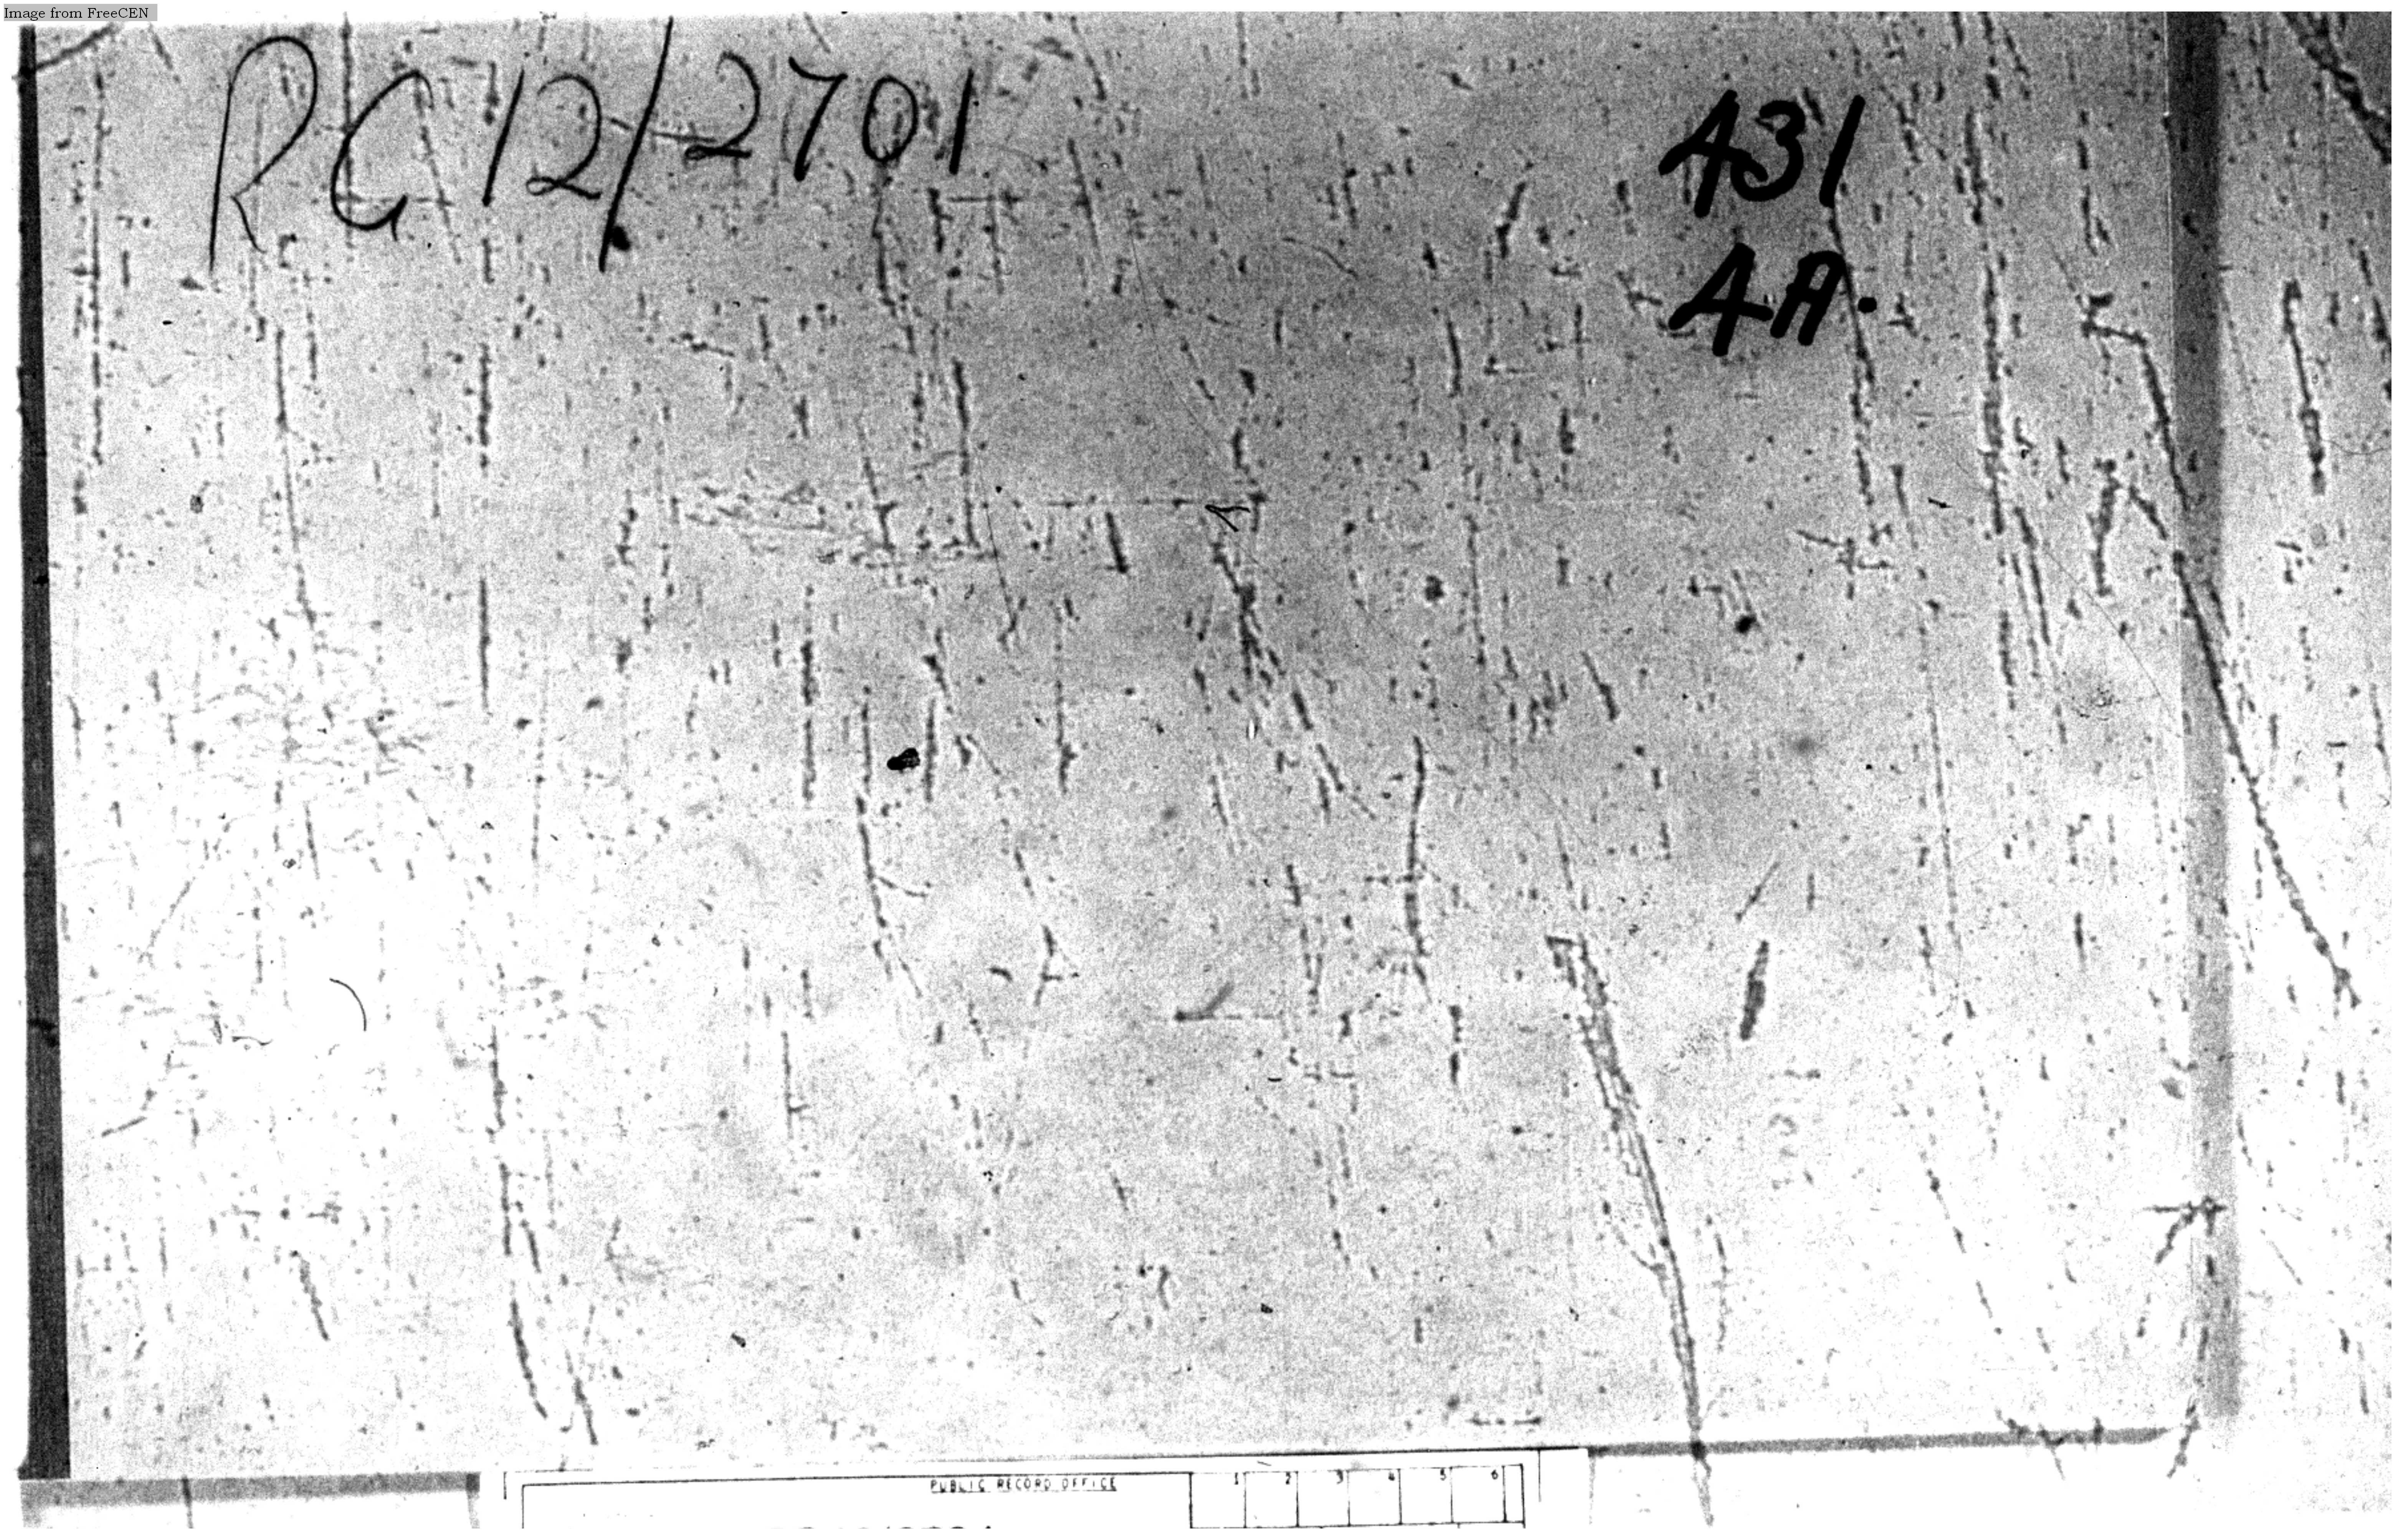 Image from FreeCEN
RG 12/2701
431
4A.
PUBLIC RECORD OFFICE
1 2 3 4 5 6